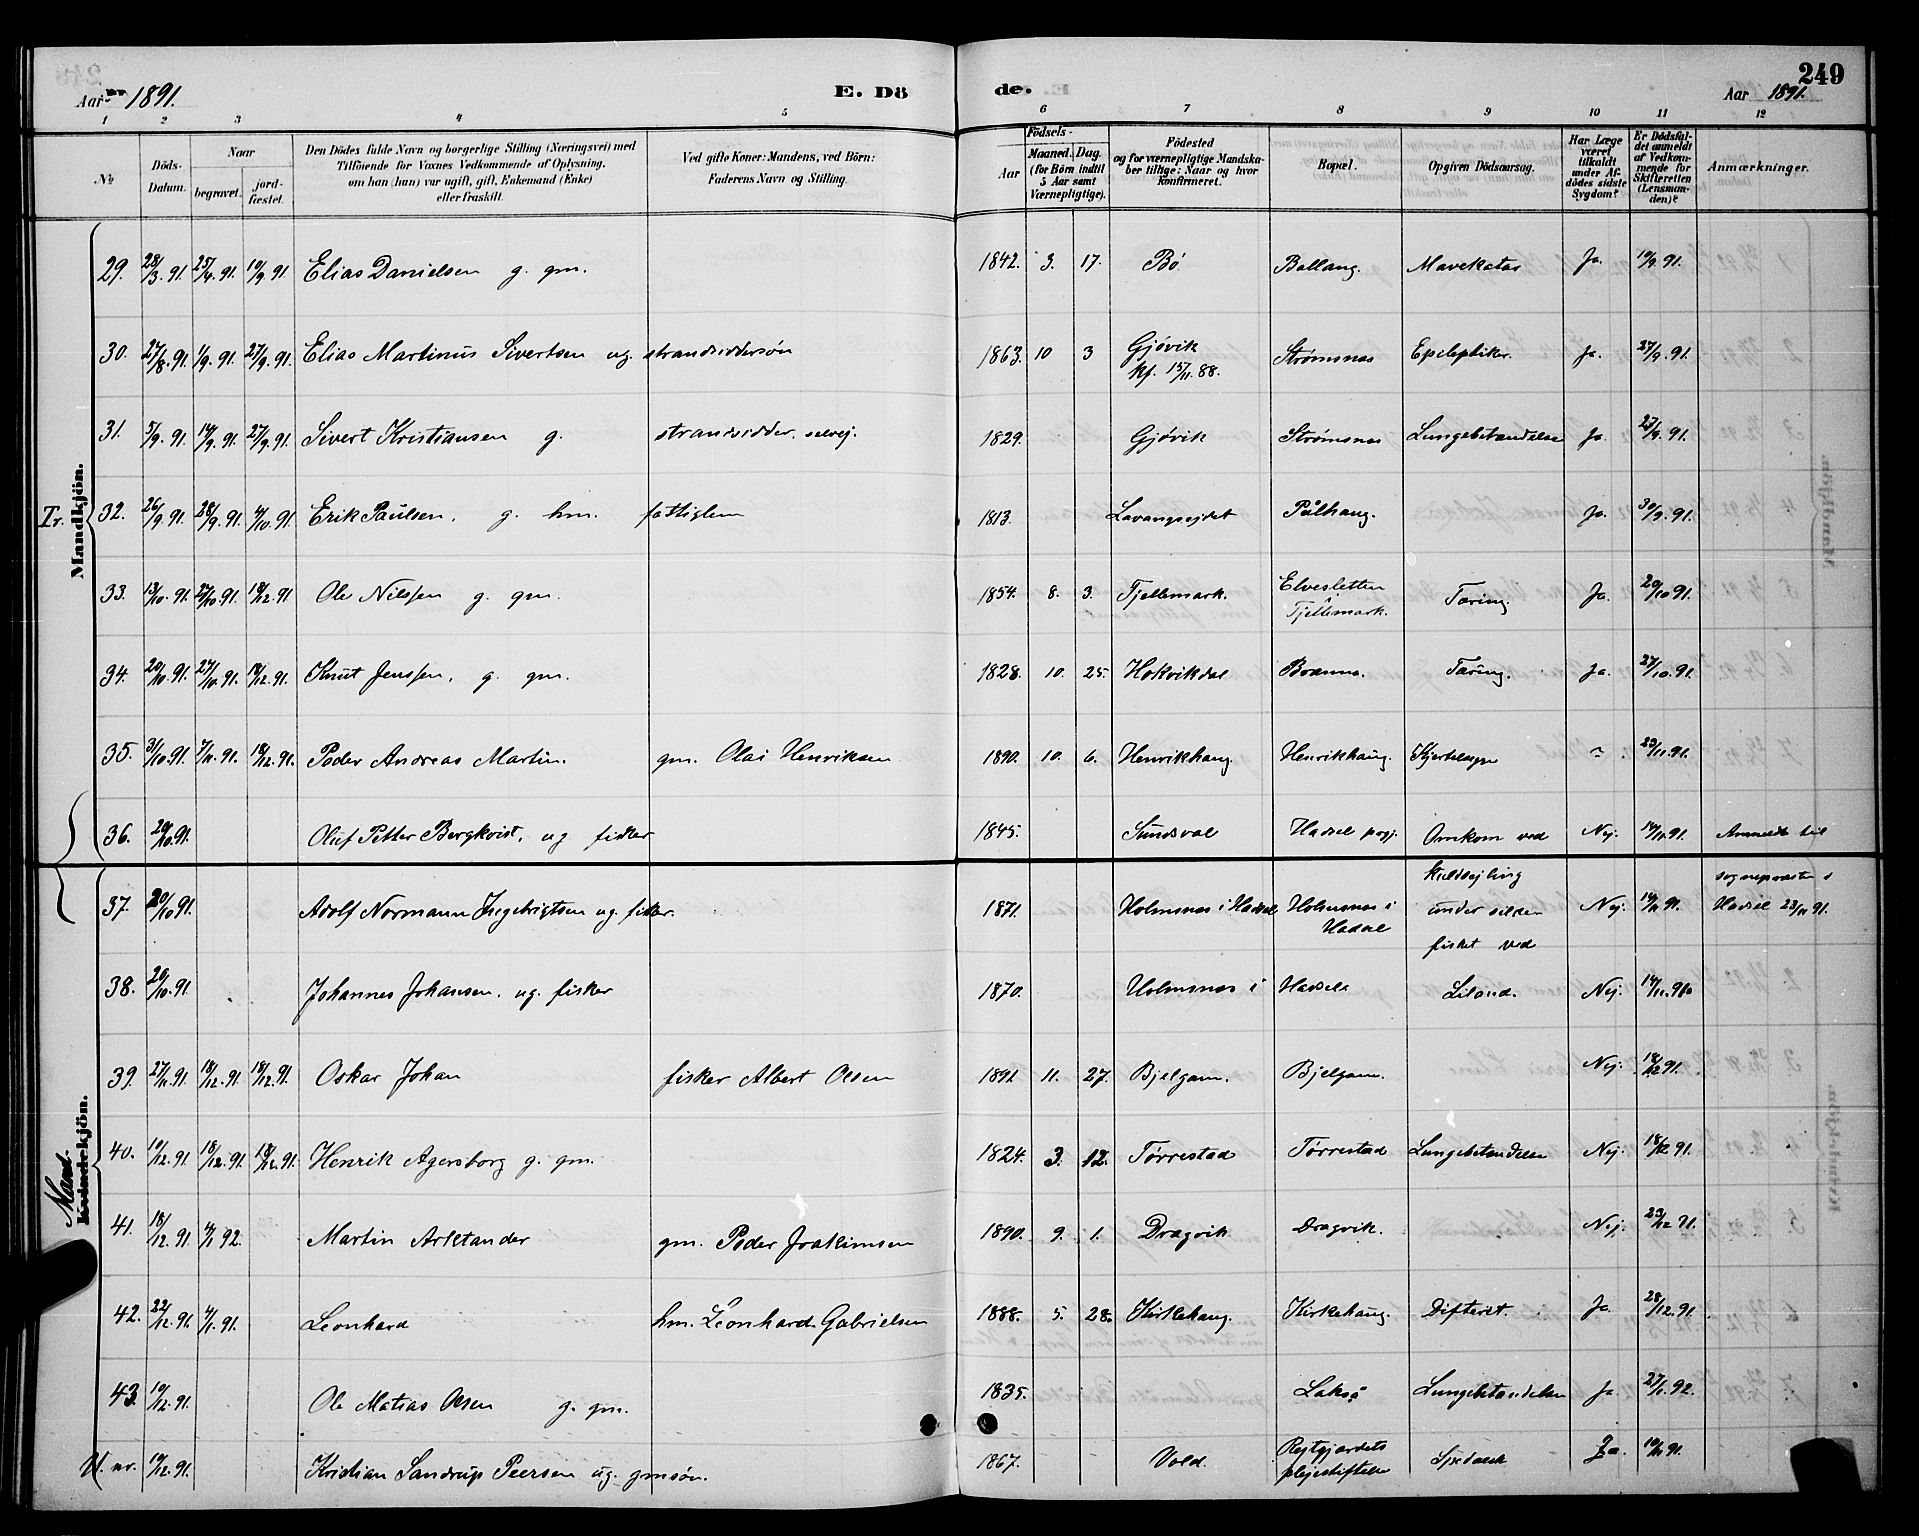 Aar 1891.
E. Dö
de.
249
Aar 1891.
1 2 3 4 5 6 7 8 9 10 11 12
No
Döds-Datum.
Naar
begravet.
jord-fæstet.
Den Dödes fulde Navn og borgerlige Stilling (Næringsvei) med
Tilföiende for Voxnes Vedkommende af Oplysning,
om han (hun) var ugift, gift, Enkemand (Enke)
eller fraskilt.
Ved gifte Koner: Mandens, ved Börn:
Faderens Navn og Stilling.
Födsels-
Aar
Maaned. Dag.
(for Börn indtil
5 Aar samt
Værnepligtige).
Födested
og for værnepligtige Mandska-
ber tillige: Naar og hvor
konfirmeret.
Bopæl.
Opgiven Dödsaarsag.
Har Læge
været
tilkaldt
under Af-
dödes sidste
Sygdom?
Er Dödsfal-
det anmeldt
af Vedkom-
mende for
Skifteretten
(Lensman-
den)?
Anmærkninger.
Mandkjön.
Tr.
29. 28/3.91. 25/4.91. 19/9 91 Elias Danielsen g. gm. 1842. 3. 17. Bö Ballang. Mavekatar Ja. 19/9.91.
30. 27/8.91. 1/9.91. 27/9.91. Elias Martinus Sivertsen ug. strandsiddersøn 1863. 10 3 Gjøvik Strømsnas Epeleptiker. Ja. 27/9.91.
kf. 13/11.88.
31. 5/9.91. 14/9.91. 27/9.91. Sivert Kristiansen g. strandsidder, selvej. 1829. Gjøvik Strømsnas Lungebetandelse Ja. 27/9.91.
32. 26/9.91. 28/9.91. 4/10.91. Erik Paulsen. g. hm. fattiglem 1813. Lavangsejdet Pålhaug. Ja. 30/9.91.
33. 13/10.91. 27/10.91. 18/12.91 Ole Nilssen g. gm. 1854. 8. 3. Tjellemark. Elvesletten Tæring. Ja. 20/10 91.
i Tjellemark.
34. 20/10.91. 27/10.91. 18/12.91. Knut Jenssen. g. gm. 1828. 10. 25. Hokvikdal Boanna. Tæring. Ja. 27/10.91.
35. 31/10.91. 7/11.91. 18/12.91. Peder Andreas Martin. gm. Olai Henriksen 1890. 10. 6. Henrikhaug. Henrikhaug. 23/11.91.
36. 20/10.91. Oluf Petter Bergkvist. ug fisker 1845. Sundsval Hadsel prgj. Omkom ved Nej. 14/11.91. Anmeldt til
37. 20/10 91. Adolf Normann Ingebrigtsen ug. fisker. 1871. Holmsnas i Hadsel Holmsnas i Hadsel kuldsejling under silde fisket ved Nej. 14/11.91. sognepræsten i Hadsel 23/11 91.
38. 20/10.91. Johannes Johansen. ug. fisker 1870. Holmsnas i Hadsel Liland. Nej. 14/11.91
Mand
Kvindekjön.
39. 27/11.91. 18/12.91. 18/12.91. Oskar Johan fisker Albert Olsen 1891 11. 27. Bjelgam. Bjelgam. Nej. 18/12 91.
40. 10/12.91 18/12.91 18/12.91. Henrik Agersborg g. gm. 1824. 3. 12. Tørrestad Tørrestad Lungebetandelse Nej. 18/12 91.
41. 18/12.91 4/1 92. Martin Arktander gm. Peder Joakimsen 1890. 9. 1. Dragvik Dragvik. Nej. 23/12 91.
42. 22/12.91. 4/1.91. Leonhard hm. Leonhard Gabrielsen 1888. 5. 28. Kirkehaug. Kirkehaug. Difterit. Ja. 28/12.91.
43. 10/12.91. Ole Matias Olsen g. gm. 1835. Lakså Lungebetandelse Ja 27/1.92.
U. nr. 19/12.91. Kristian Sandrup Peersen ug. gmsøn. 1867. Vold. Rejtgjardets plejestiftelse Spedalsk Ja.